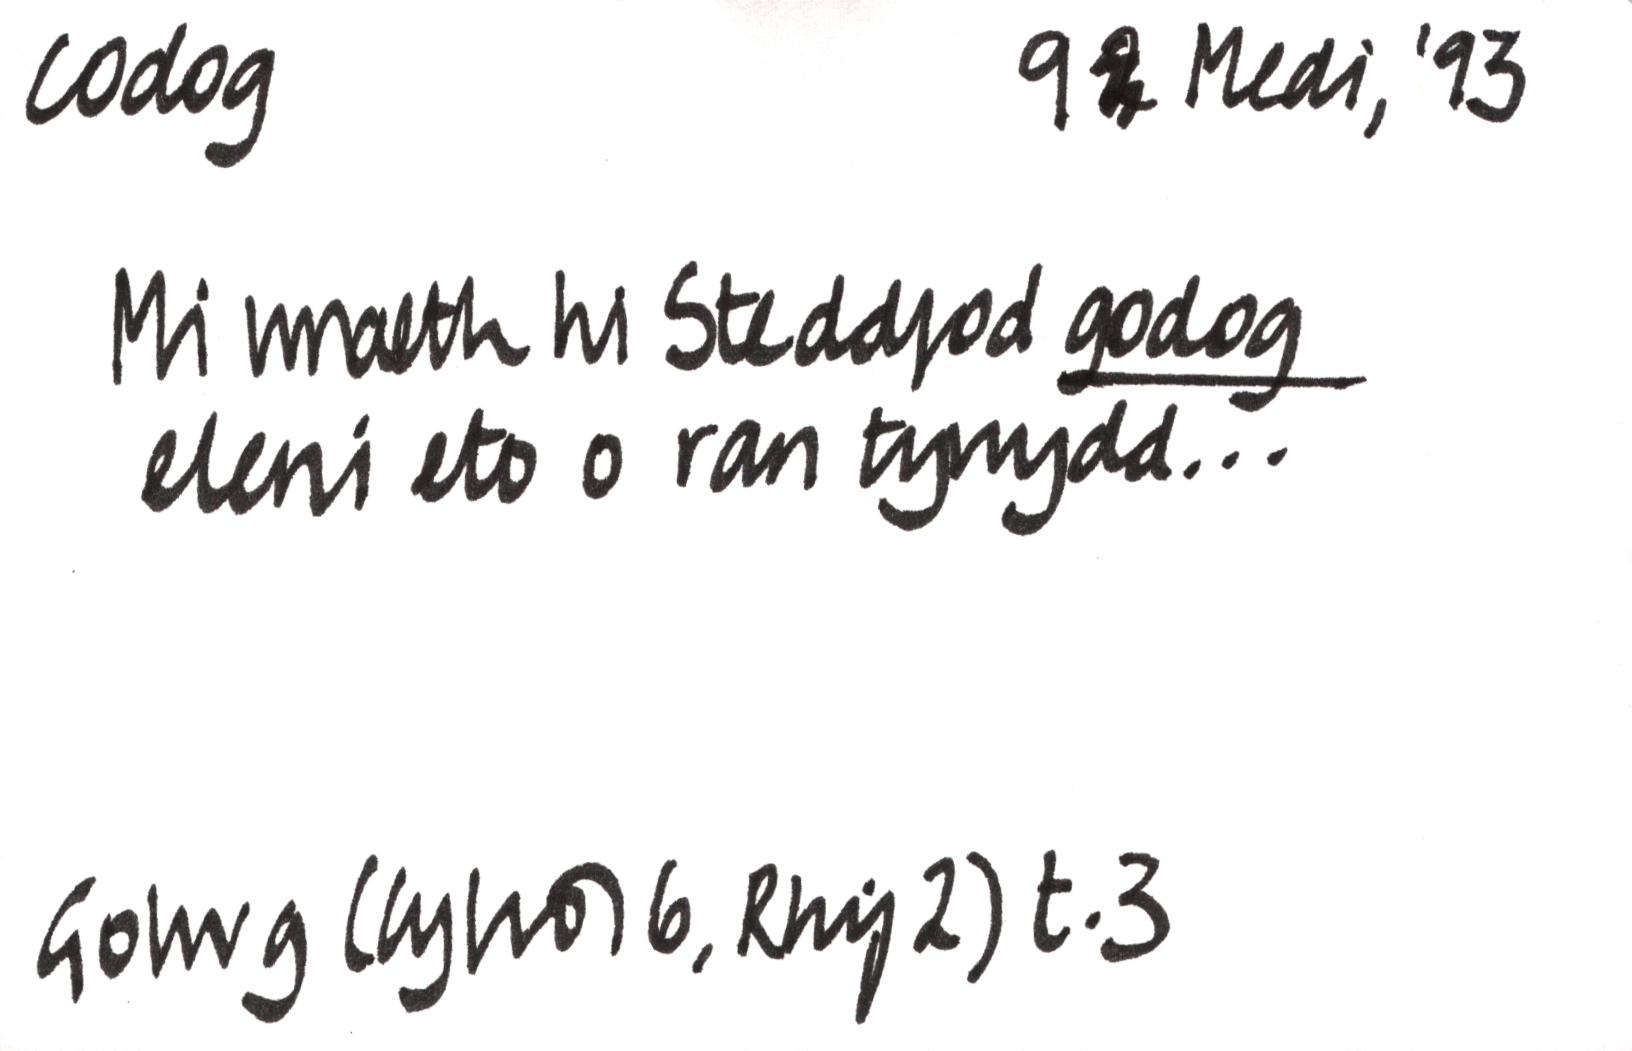 codog
9 Medi, '93
Mi wnaeth hi Steddfod godog
eleni eto o ran tywydd...
Golwg (Cyfrol 6, Rhif 2) t.3